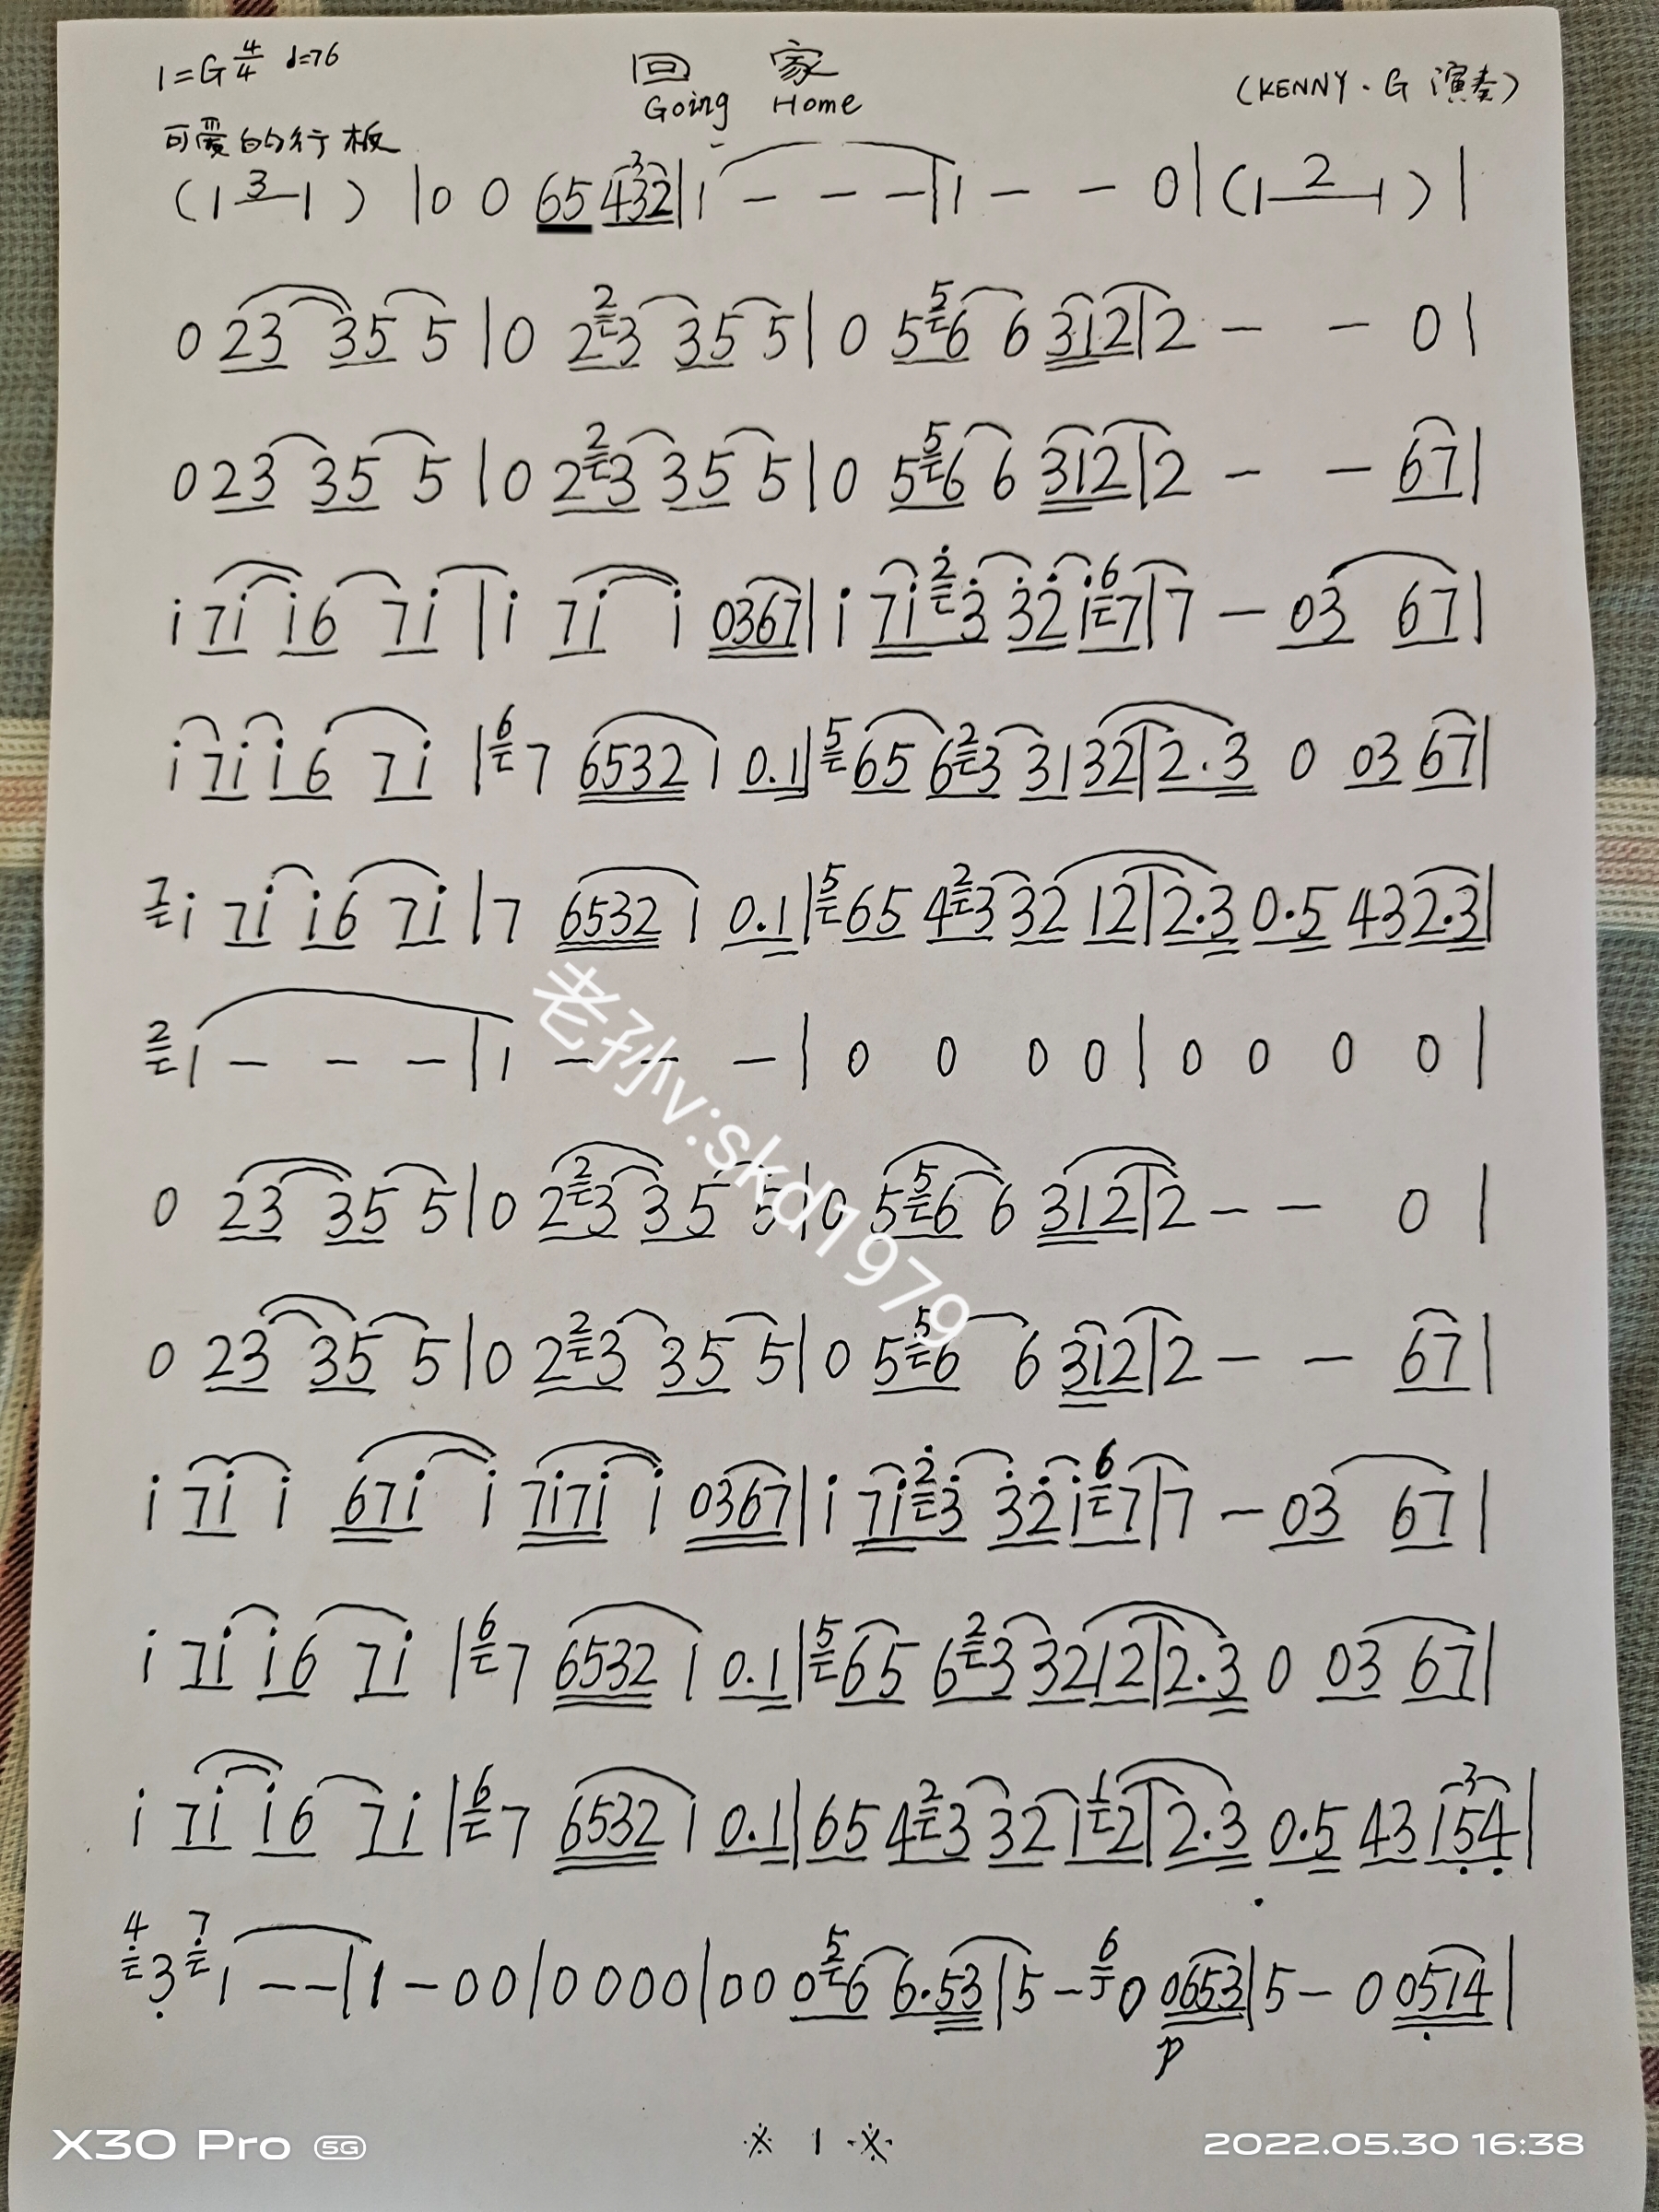 1=G 4/4 ♩=76
回 家
Going Home
(KENNY·G 演奏)
可爱的行板
(1 3 1) | 0 0 65 432 | 1 - - - | 1 - - 0 | (1 2 1) |
0 23 35 5 | 0 2 2 3 35 5 | 0 5 5 6 6 312 | 2 - - 0 |
0 23 35 5 | 0 2 2 3 35 5 | 0 5 5 6 6 312 | 2 - - 67 |
i 7i i6 7i | i 7i i 0367 | i 7i 2̇ 3̇ 3̇2̇ i 6 7 | 7 - 03 67 |
i 7i i6 7i | 6 7 6532 1 0.1 | 5 65 6 2 3 31 32 | 2.3 0 03 67 |
7 i 7i i6 7i | 7 6532 1 0.1 | 5 65 4 2 3 32 12 | 2.3 0.5 43 2.3 |
2 1 - - - | 1 - - - | 0 0 0 0 | 0 0 0 0 |
0 23 35 5 | 0 2 2 3 35 5 | 0 5 5 6 6 312 | 2 - - 0 |
0 23 35 5 | 0 2 2 3 35 5 | 0 5 5 6 6 312 | 2 - - 67 |
i 7i i 67i i 7i7i i 0367 | i 7i 2̇ 3̇ 3̇2̇ i 6 7 | 7 - 03 67 |
i 7i i6 7i | 6 7 6532 1 0.1 | 5 65 6 2 3 32 12 | 2.3 0 03 67 |
i 7i i6 7i | 6 7 6532 1 0.1 | 65 4 2 3 32 1 1 2 | 2.3 0.5 43 15̣4̣ |
4 3̣ 7 1 - - | 1 - 0 0 | 0 0 0 0 | 0 0 0 5 6 6.53 | 5 - 6 0 0653 | 5 - 0 05̣14 |
p
※ 1 ※
老孙v:skd1979
X30 Pro 5G
2022.05.30 16:38